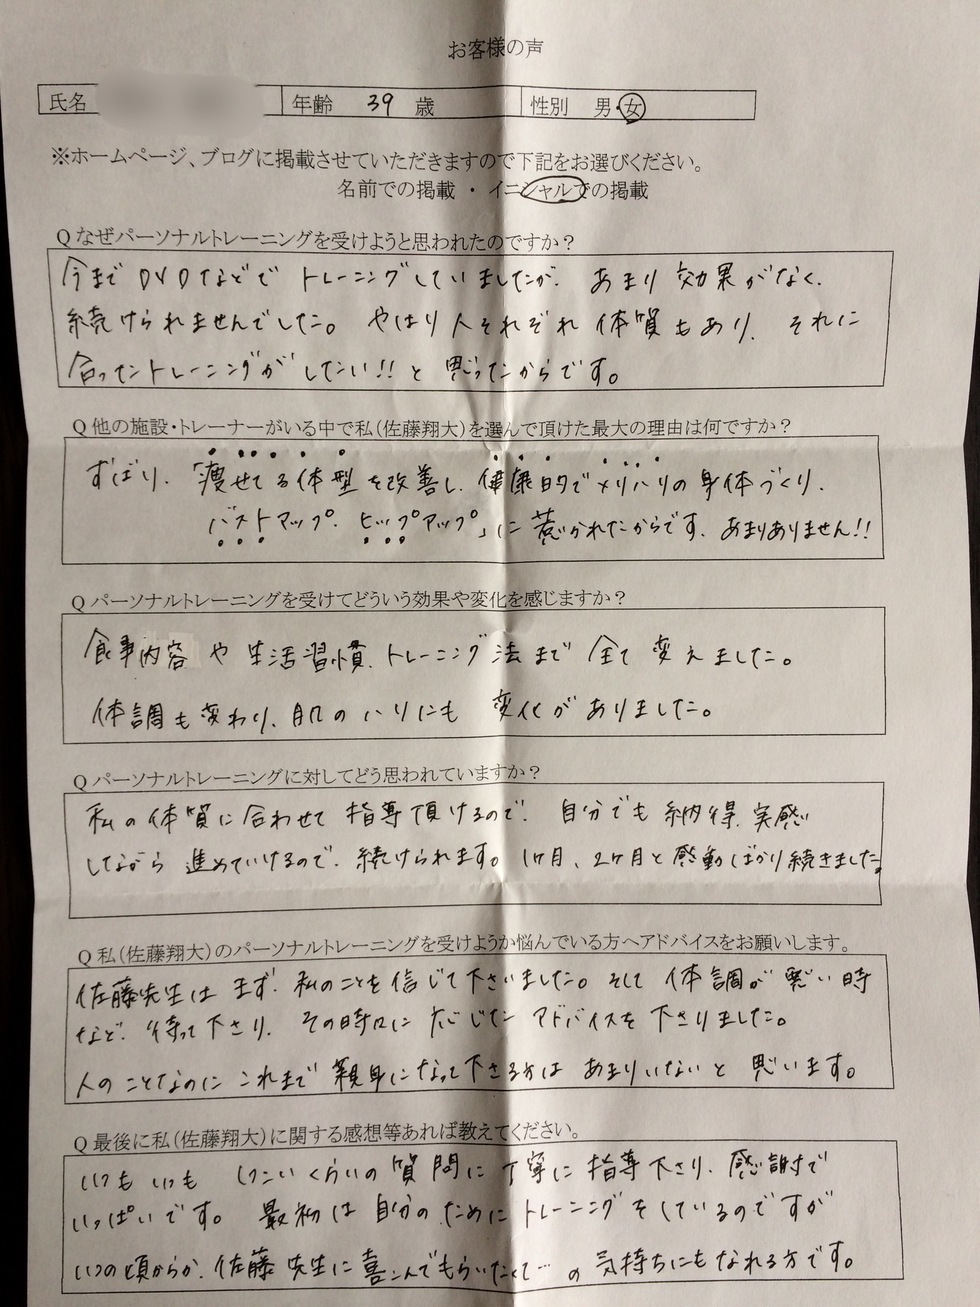 お客様の声
氏名 年齢 39 歳 性別 男・女
※ホームページ、ブログに掲載させていただきますので下記をお選びください。
名前での掲載 ・ イニシャルでの掲載
Q なぜパーソナルトレーニングを受けようと思われたのですか？
今まで DVDなどで トレーニングしていましたが、あまり 効果がなく、
続けられませんでした。やはり 人それぞれ 体質もあり、それに
合ったトレーニングがしたい!! と 思ったからです。
Q 他の施設・トレーナーがいる中で私(佐藤翔大)を選んで頂けた最大の理由は何ですか？
ずばり、「痩せてる体型を改善し、健康的でメリハリの身体づくり、
バストアップ、ヒップアップ」に 惹かれたからです、あまりありません!!
Q パーソナルトレーニングを受けてどういう効果や変化を感じますか？
食事内容 や 生活習慣、トレーニング法まで 全て 変えました。
体調も変わり、肌のハリにも 変化がありました。
Q パーソナルトレーニングに対してどう思われていますか？
私の体質に合わせて 指導頂けるので、自分でも 納得、実感
しながら 進めていけるので、続けられます。1ヶ月、2ヶ月と感動ばかり続きました。
Q 私(佐藤翔大)のパーソナルトレーニングを受けようか悩んでいる方へアドバイスをお願いします。
佐藤先生は まず、私のことを信じて下さいました。そして 体調が 悪い時
など、待って下さり、その時々に 応じた アドバイスを 下さりました。
人のことなのに これまで 親身になって下さる方は あまりいないと 思います。
Q 最後に私(佐藤翔大)に関する感想等あれば教えてください。
いつも いつも しつこいくらいの 質問に 丁寧に 指導下さり、感謝で
いっぱいです。最初は 自分の ために トレーニングをしているのですが
いつの頃からか、佐藤先生に 喜んでもらいたくて… の 気持ちにもなれる方です。